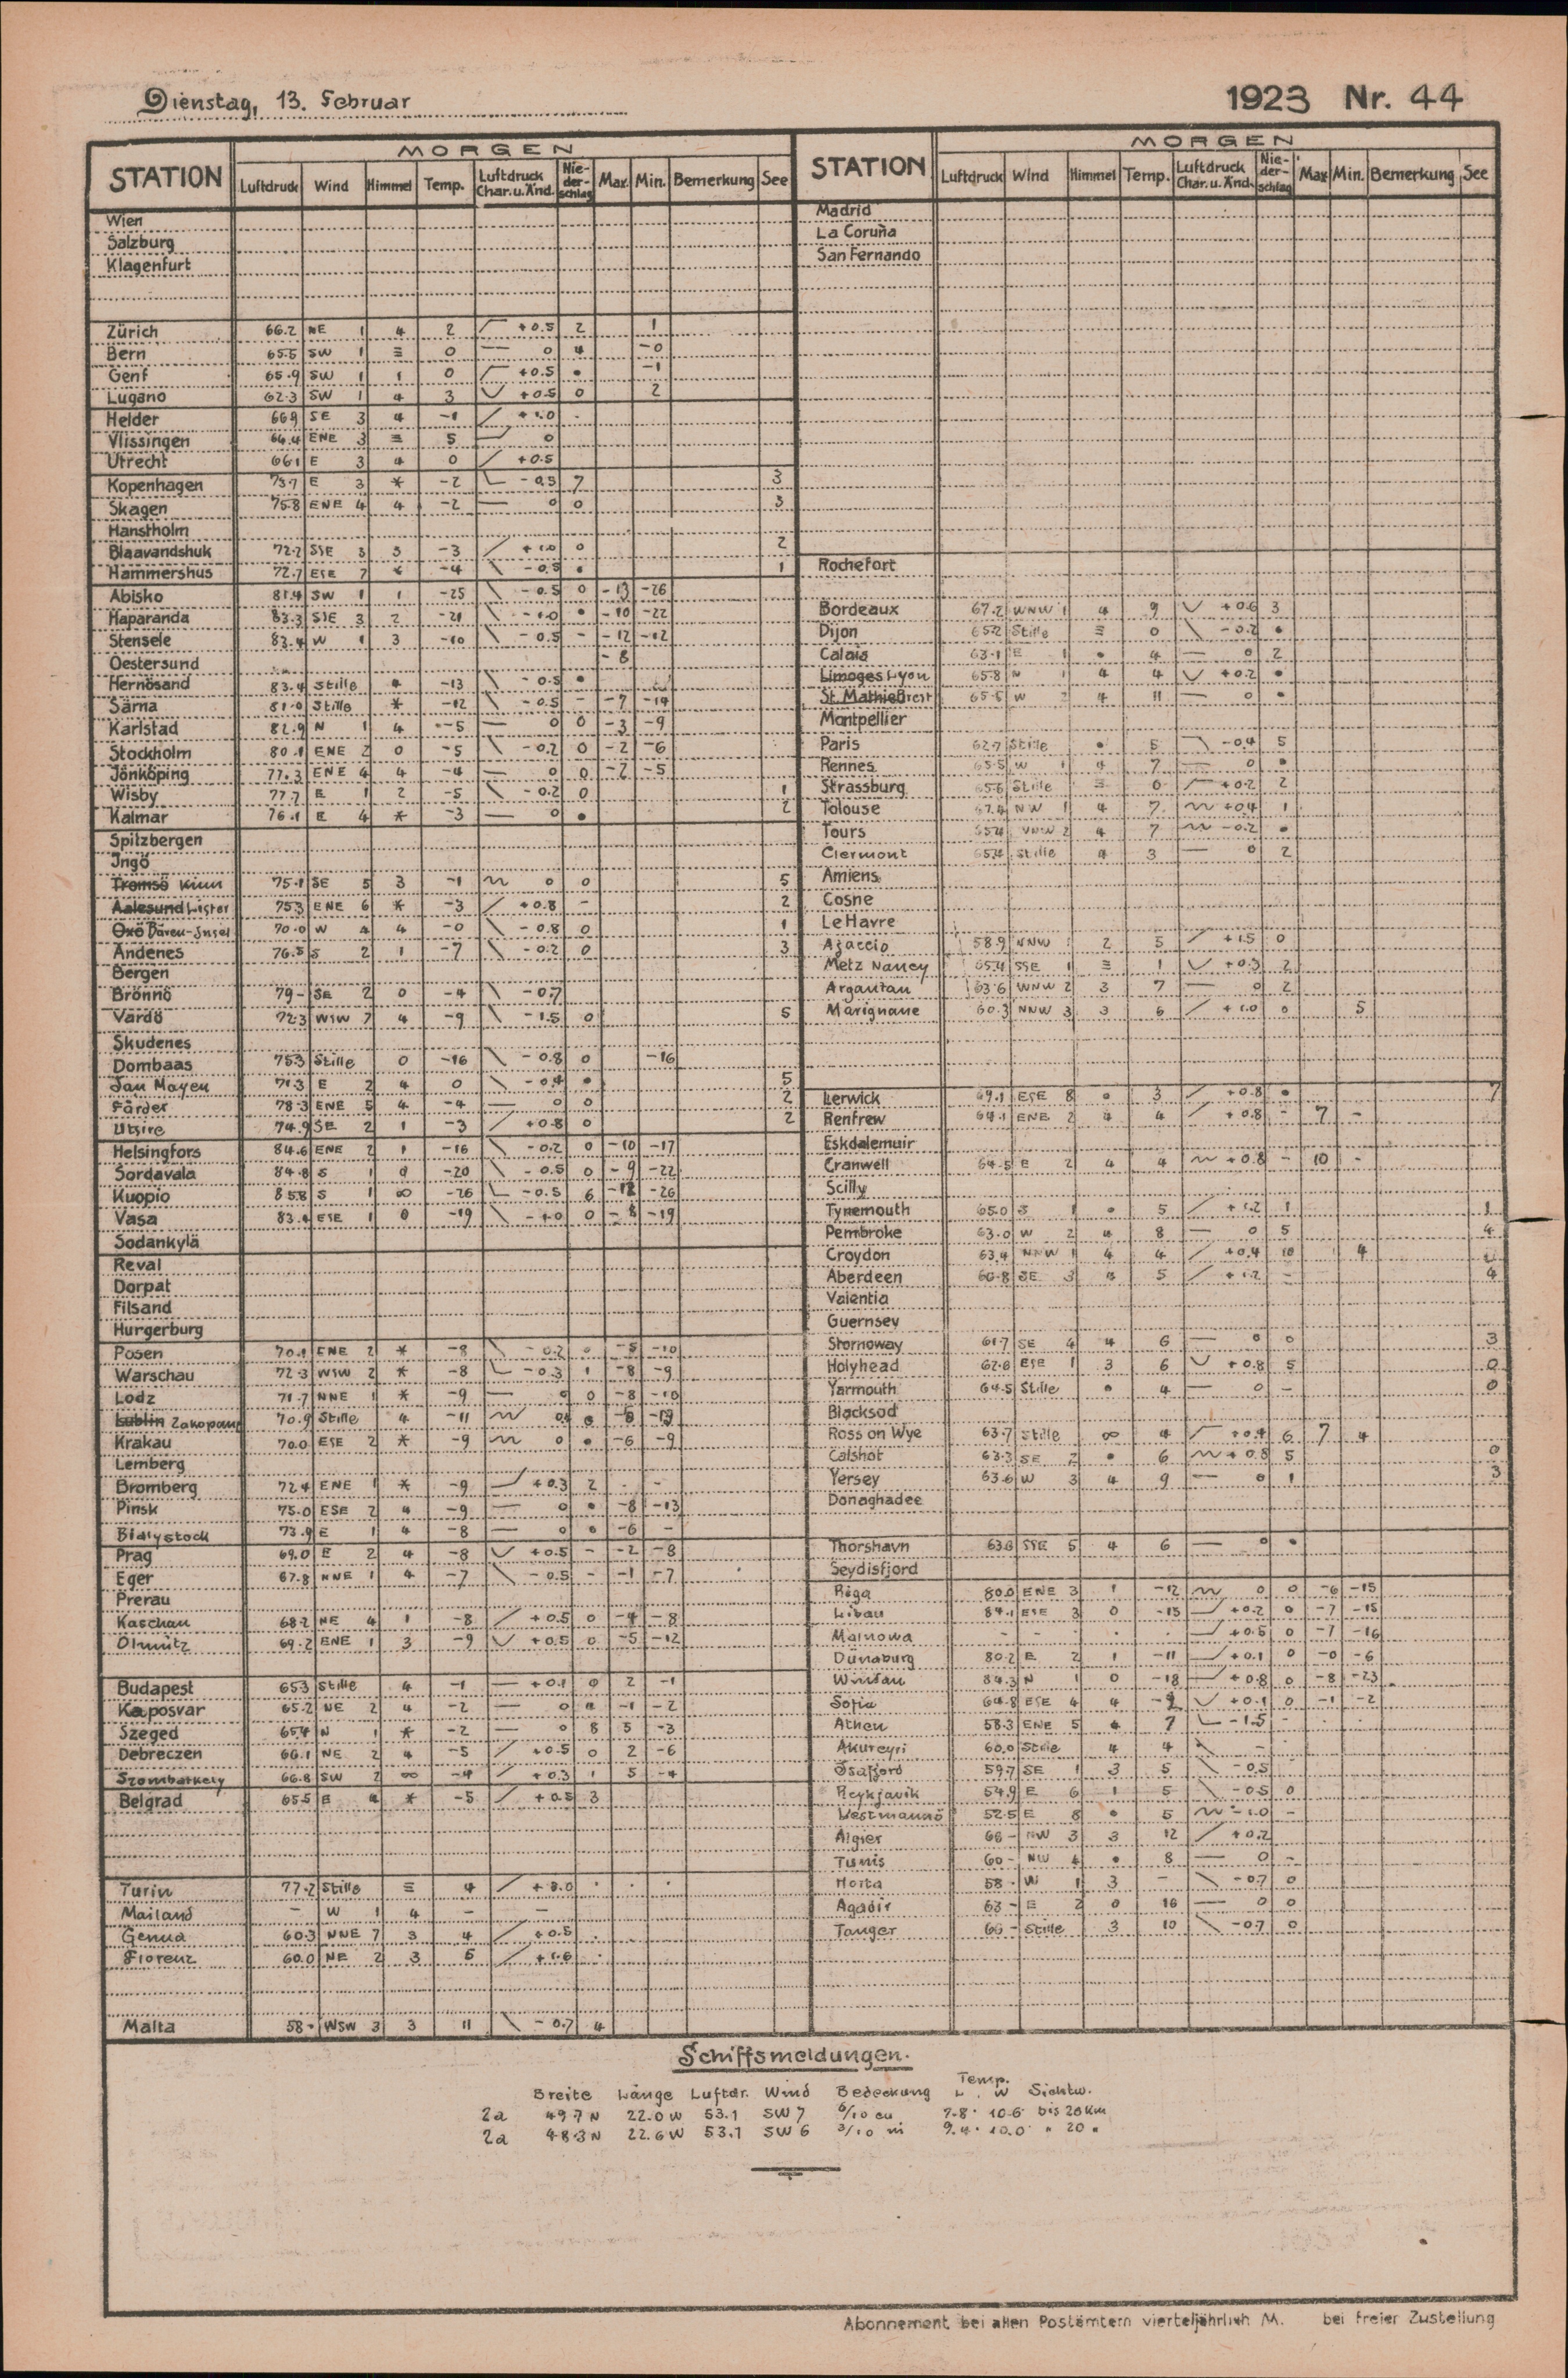 Dienstag, 13. Februar
1923 Nr. 44
MORGEN
STATION Luftdruck Wind Himmel Temp. Luftdruck Char. u. Änd. Nie-der-schlag Max. Min. Bemerkung See
Wien
Salzburg
Klagenfurt
Zürich 66.2 NE 1 4 2 +0.5 2 1
Bern 65.5 SW 1 ≡ 0 — 0 4 -0
Genf 65.9 SW 1 1 0 +0.5 • -1
Lugano 62.3 SW 1 4 3 +0.5 0 2
Helder 66.9 SE 3 4 -1 +1.0 -
Vlissingen 64.4 ENE 3 ≡ 5 0
Utrecht 66.1 E 3 4 0 +0.5
Kopenhagen 73.7 E 3 * -2 -0.5 7 3
Skagen 75.8 ENE 4 4 -2 — 0 0 3
Hanstholm
Blaavandshuk 72.2 SSE 3 3 -3 +1.0 0 2
Hammershus 72.7 ESE 7 * -4 -0.5 • 1
Abisko 81.4 SW 1 1 -25 -0.5 0 -13 -26
Haparanda 83.3 SSE 3 2 -21 -1.0 • -10 -22
Stensele 83.4 W 1 3 -10 -0.5 - -12 -12
Oestersund -8
Hernösand 83.4 Stille * -13 -0.5 •
Särna 81.0 Stille * -12 -0.5 - -7 -14
Karlstad 82.9 N 1 4 -5 — 0 0 -3 -9
Stockholm 80.1 ENE 2 0 -5 -0.2 0 -2 -6
Jönköping 77.3 ENE 4 4 -4 — 0 0 -2 -5
Wisby 77.7 E 1 2 -5 -0.2 0 1
Kalmar 76.1 E 4 * -3 — 0 • 2
Spitzbergen
Ingö
Tromsö Kinn 75.1 SE 5 3 -1 0 0 5
Aalesund Lister 75.3 ENE 6 * -3 +0.8 - 2
Oxö Bären-Insel 70.0 W 4 4 -0 -0.8 0 1
Andenes 76.5 S 2 1 -7 -0.2 0 3
Bergen
Brönnö 79- SE 2 0 -4 -0.7
Vardö 72.3 WSW 7 4 -9 -1.5 0 5
Skudenes
Dombaas 75.3 Stille 0 -16 -0.8 0 -16
Jan Mayen 71.3 E 2 4 0 -0.4 • 5
Färder 78.3 ENE 5 4 -4 — 0 0 2
Utsire 74.9 SE 2 1 -3 +0.8 0 2
Helsingfors 84.6 ENE 2 1 -16 -0.2 0 -10 -17
Sordavala 84.8 S 1 0 -20 -0.5 0 -9 -22
Kuopio 85.8 S 1 ∞ -26 -0.5 6 -26
Vasa 83.4 ESE 1 0 -19 -1.0 0 -8 -19
Sodankylä
Reval
Dorpat
Filsand
Hurgerburg
Posen 70.1 ENE 2 * -8 -0.2 0 -5 -10
Warschau 72.3 WSW 2 * -8 -0.3 1 -8 -9
Lodz 71.7 NNE 1 * -9 — 0 0 -8 -10
Lublin Zakopane 70.9 Stille 4 -11
Krakau 70.0 ESE 2 * -9 0 • -6 -9
Lemberg
Bromberg 72.4 ENE 1 * -9 +0.3 2 - -
Pinsk 75.0 ESE 2 4 -9 — 0 • -8 -13
Bialystock 73.9 E 1 4 -8 — 0 0 -6 -
Prag 69.0 E 2 4 -8 +0.5 - -2 -8
Eger 67.8 NNE 1 4 -7 -0.5 - -1 -7
Prerau
Kaschau 68.2 NE 4 1 -8 +0.5 0 -4 -8
Olmütz 69.2 ENE 1 3 -9 +0.5 0 -5 -12
Budapest 65.3 Stille 4 -1 +0.1 0 2 -1
Kaposvar 65.2 NE 2 4 -2 — 0 -1 -2
Szeged 65.4 N 1 * -2 — 0 8 5 -3
Debreczen 66.1 NE 2 4 -5 +0.5 0 2 -6
Szombathely 66.8 SW 2 ∞ -4 +0.3 1 5 -4
Belgrad 65.5 E 4 * -5 +0.5 3
Turin 77.2 Stille ≡ 4 +8.0 . . .
Mailand - W 1 4 - -
Genua 60.3 NNE 7 3 4 +0.5 .
Florenz 60.0 NE 2 3 5 +1.6 .
Malta 58- WSW 3 3 11 -0.7 4
MORGEN
STATION Luftdruck Wind Himmel Temp. Luftdruck Char. u. Änd. Nie-der-schlag Max Min. Bemerkung See
Madrid
La Coruña
San Fernando
Rochefort
Bordeaux 67.2 WNW 1 4 9 +0.6 3
Dijon 65.2 Stille ≡ 0 -0.2 •
Calais 63.1 E 1 • 4 — 0 2
Limoges Lyon 65.8 N 1 4 4 +0.2 •
St. Mathieu Brest 65.5 W 2 4 11 — 0 •
Montpellier
Paris 62.7 Stille • 5 -0.4 5
Rennes 65.5 W 1 4 7 — 0 •
Strassburg 65.6 Stille ≡ 0 +0.2 2
Tolouse 67.4 NW 1 4 7 +0.4 1
Tours 65.4 WNW 2 4 7 -0.2 •
Clermont 65.4 Stille 4 3 — 0 2
Amiens
Cosne
Le Havre
Ajaccio 58.9 NNW 1 2 5 +1.5 0
Metz Nancy 65.4 SSE 1 ≡ 1 +0.3 2
Argantan 63.6 WNW 2 3 7 — 0 2
Marignane 60.3 NNW 3 3 6 +1.0 0 5
Lerwick 69.1 ESE 8 • 3 +0.8 • 7
Renfrew 64.1 ENE 2 4 4 +0.8 - 7 -
Eskdalemuir
Cranwell 64.5 E 2 4 4 +0.8 - 10 -
Scilly
Tynemouth 65.0 S 1 • 5 +1.2 1 1
Pembroke 63.0 W 2 4 8 — 0 5 4
Croydon 63.4 NNW 1 4 4 +0.4 10 4
Aberdeen 66.8 SE 3 4 5 +1.2 - 4
Valentia
Guernsey
Stornoway 61.7 SE 4 4 6 — 0 0 3
Holyhead 62.6 ESE 1 3 6 +0.8 5 0
Yarmouth 64.5 Stille • 4 — 0 - 0
Blacksod
Ross on Wye 63.7 Stille ∞ 4 +0.4 6 7 4
Calshot 63.3 SE 2 • 6 +0.8 5 0
Yersey 63.6 W 3 4 9 — 0 1 3
Donaghadee
Thorshavn 63.3 SSE 5 4 6 — 0 •
Seydisfjord
Riga 80.0 ENE 3 1 -12 0 0 -6 -15
Libau 84.1 ESE 3 0 -15 +0.2 0 -7 -15
Malnowa - - . . +0.5 0 -7 -16
Dünaburg 80.2 E 2 1 -11 +0.1 0 -0 -6
Windau 84.3 N 1 0 -18 +0.8 0 -8 -23
Sofia 64.8 ESE 4 4 +0.1 0 -1 -2
Athen 58.3 ENE 5 4 7 -1.5 -
Akureyri 60.0 Stille 4 4 -
Isafjord 59.7 SE 1 3 5 -0.5
Reykjavik 54.9 E 6 1 5 -0.5 0
Westmannö 52.5 E 8 • 5 -1.0 -
Algier 66- NW 3 3 12 +0.2
Tunis 60- NW 4 • 8 — 0 -
Horta 58- W 1 3 - -0.7 0
Agadir 63- E 2 0 16 — 0 0
Tanger 66- Stille 3 10 -0.7 0
Schiffsmeldungen.
Breite Länge Luftdr. Wind Bedeckung Temp. L. W Sichtw.
2a 49.7 N 22.0 W 53.1 SW 7 6/10 cu 9.8° 10.6° bis 20 Km
2a 48.3 N 22.6 W 53.1 SW 6 3/10 ni 9.4° 10.0° " 20 "
Abonnement bei allen Postämtern vierteljährlich M. bei freier Zustellung